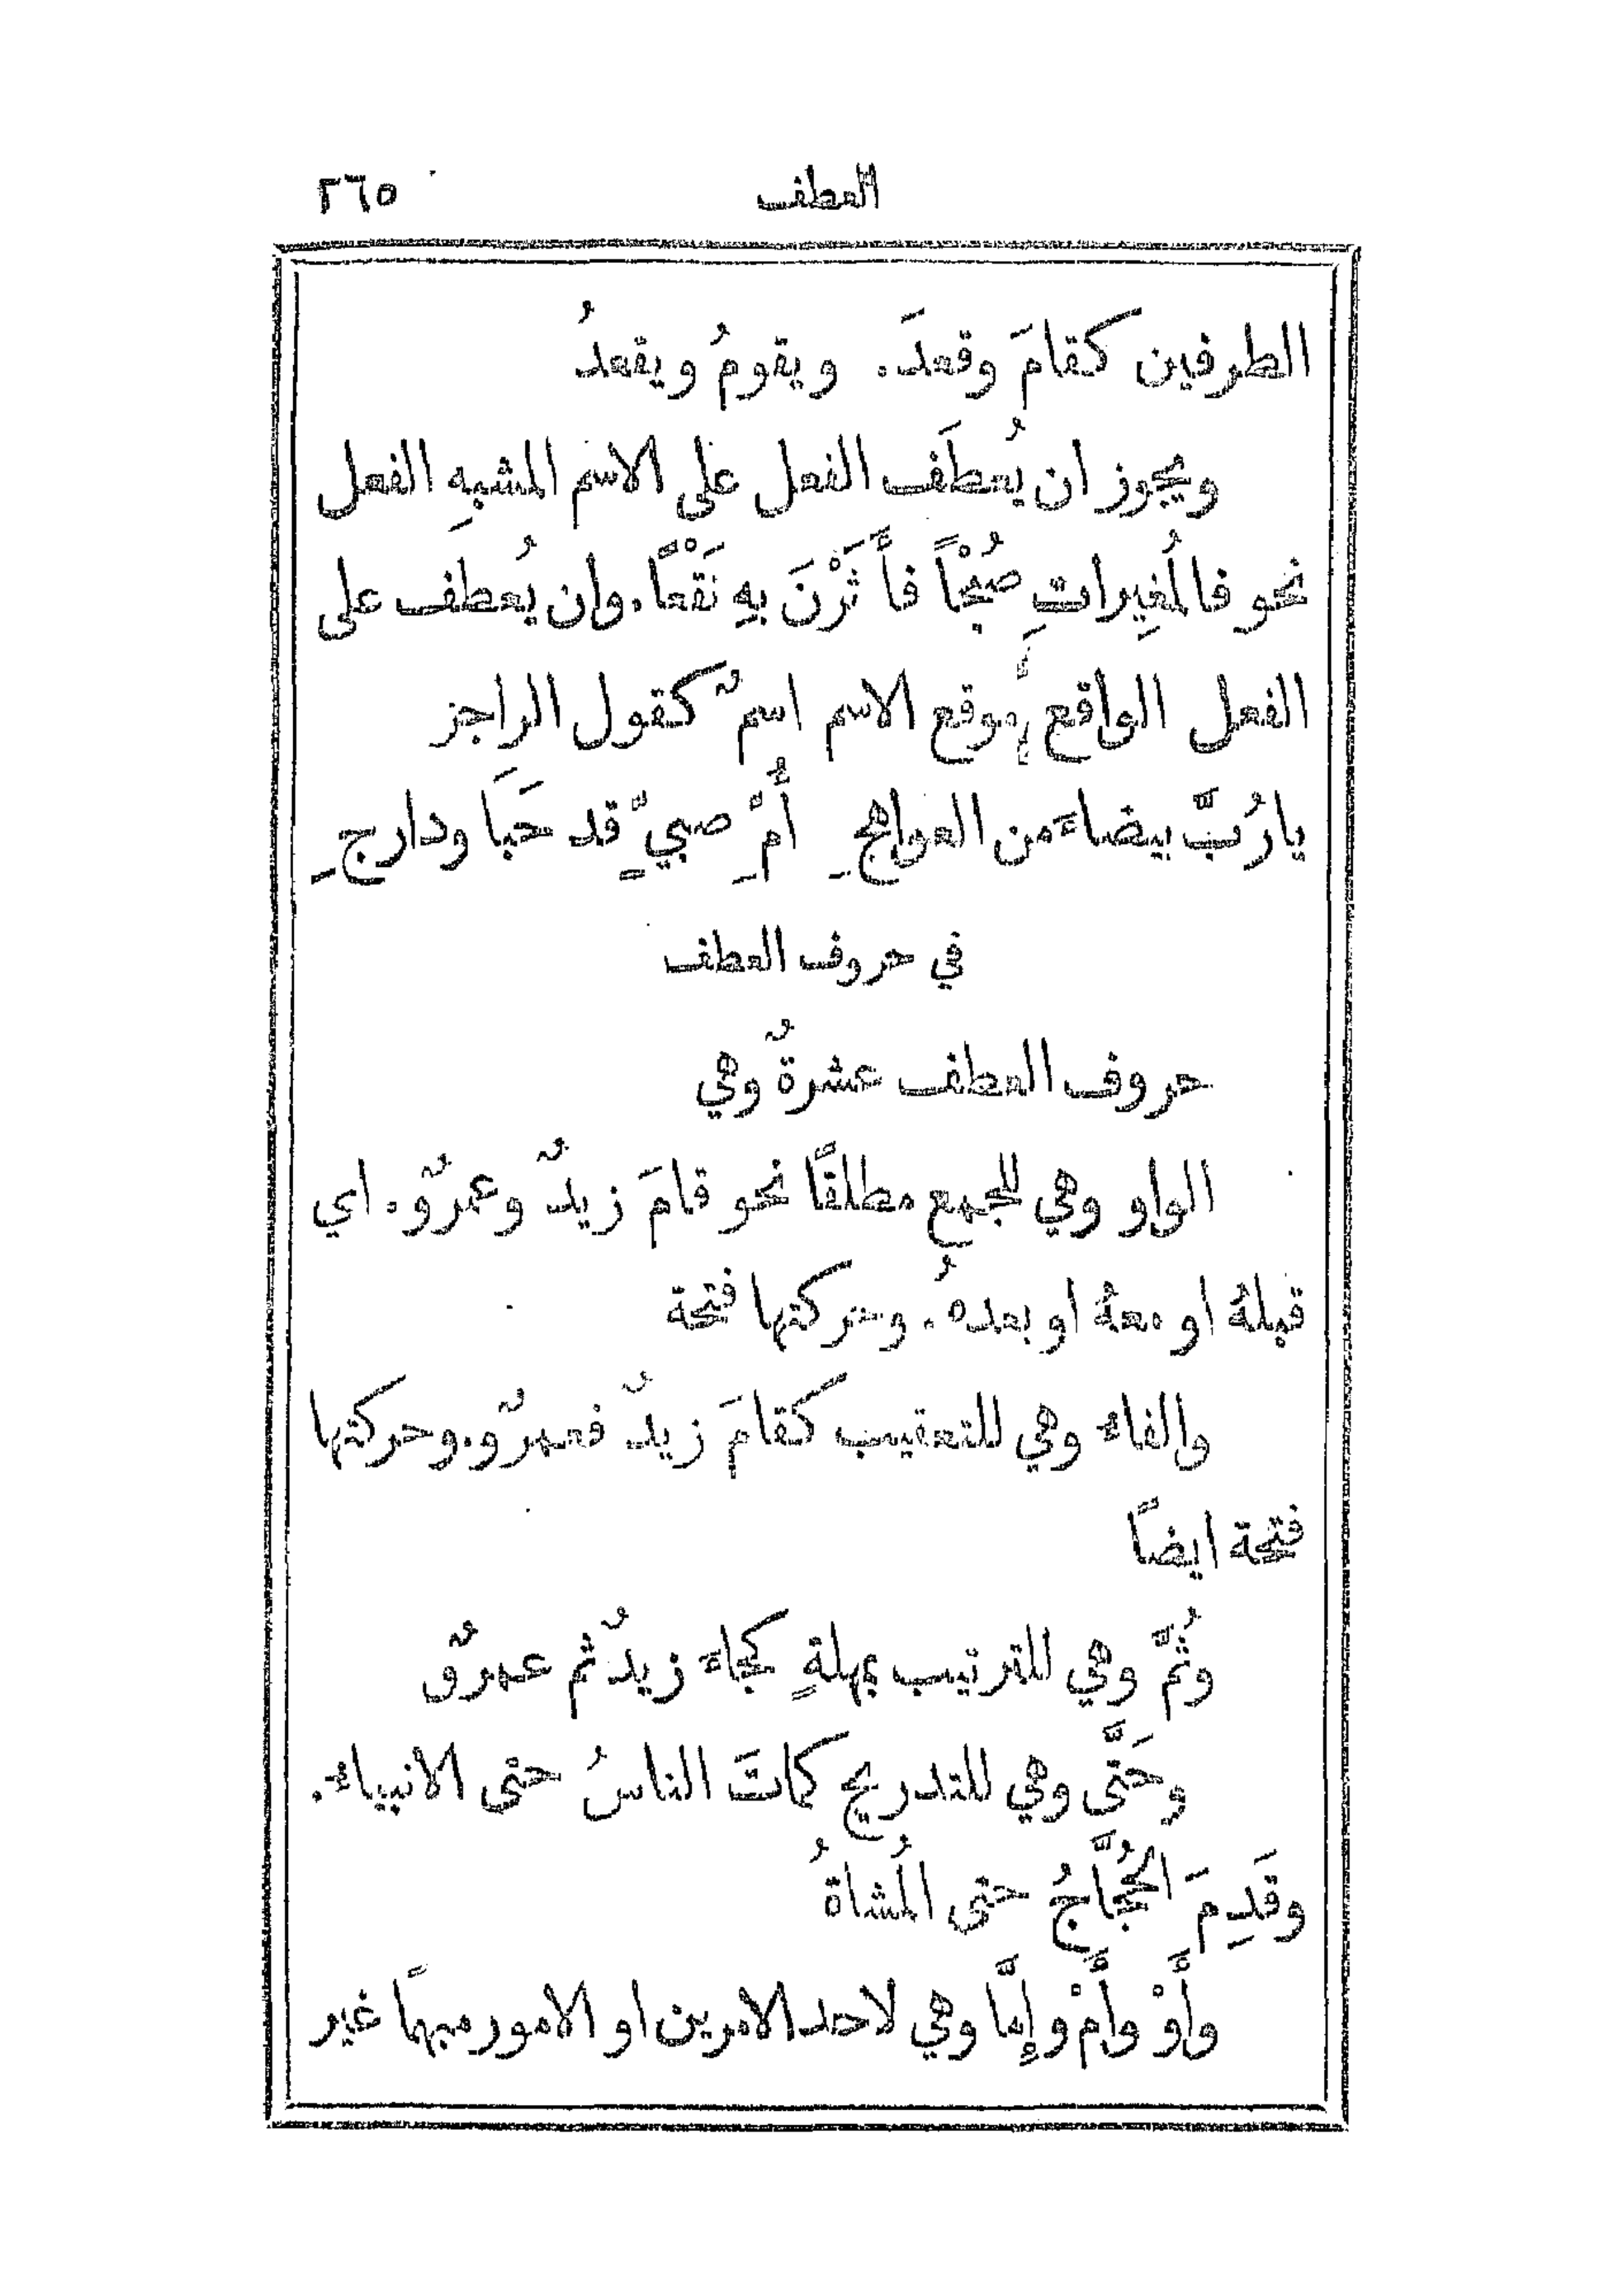 العطف ٢٦٥
الطرفين كقامَ وقعدَ. ويقومُ ويقعدُ
ويجوز ان يُعطَف الفعل على الاسم المشبهِ الفعل
نحو فالمُغِيراتِ صُبْحًا فأَثَرْنَ بهِ نَقْعًا. وان يُعطف على
الفعل الواقع موقع الاسم اسمٌ كقول الراجز
يا رُبَّ بيضاءَ من العواهجِ أُمِّ صبيٍّ قد حَبَا ودارجِ
في حروف العطف
حروف العطف عشرةٌ وهي
الواو وهي للجمع مطلقًا نحو قامَ زيدٌ وعمرٌو. اي
قبلهُ او معهُ او بعدهُ. وحركتها فتحة
والفاء وهي للتعقيب كقامَ زيدٌ فعمرٌو. وحركتها
فتحة ايضًا
وثُمَّ وهي للترتيب بمهلةٍ كجاءَ زيدٌ ثم عمرٌو
وحَتَّى وهي للتدريج كماتَ الناسُ حتى الانبياء.
وقَدِمَ الحُجَّاجُ حتى المُشاةُ
وأَوْ وأَمْ وإِمَّا وهي لاحد الامرين او الامور مبهمًا غير